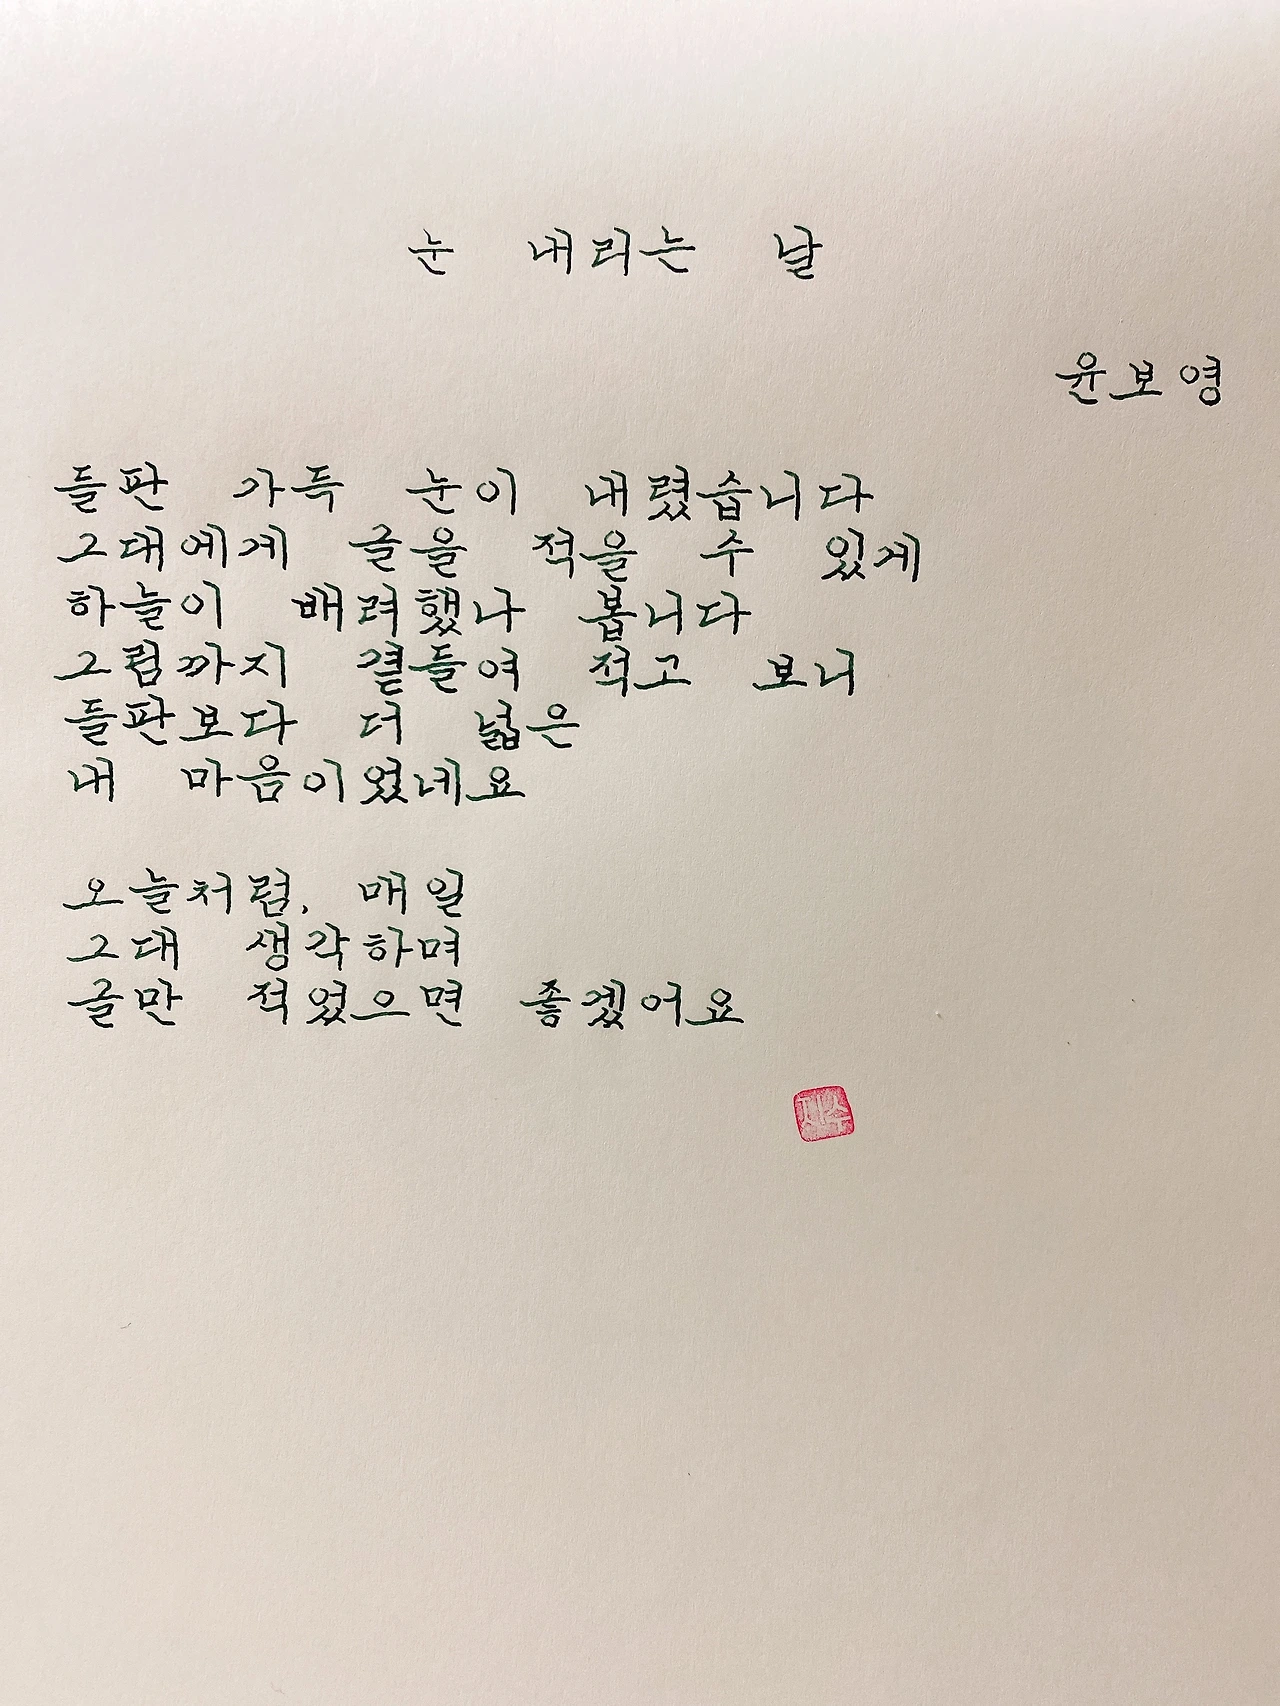 눈 내리는 날
윤보영
들판 가득 눈이 내렸습니다
그대에게 글을 적을 수 있게
하늘이 배려했나 봅니다
그럼까지 곁들여 적고 보니
들판보다 더 넓은
내 마음이었네요
오늘처럼, 매일
그대 생각하며
글만 적었으면 좋겠어요